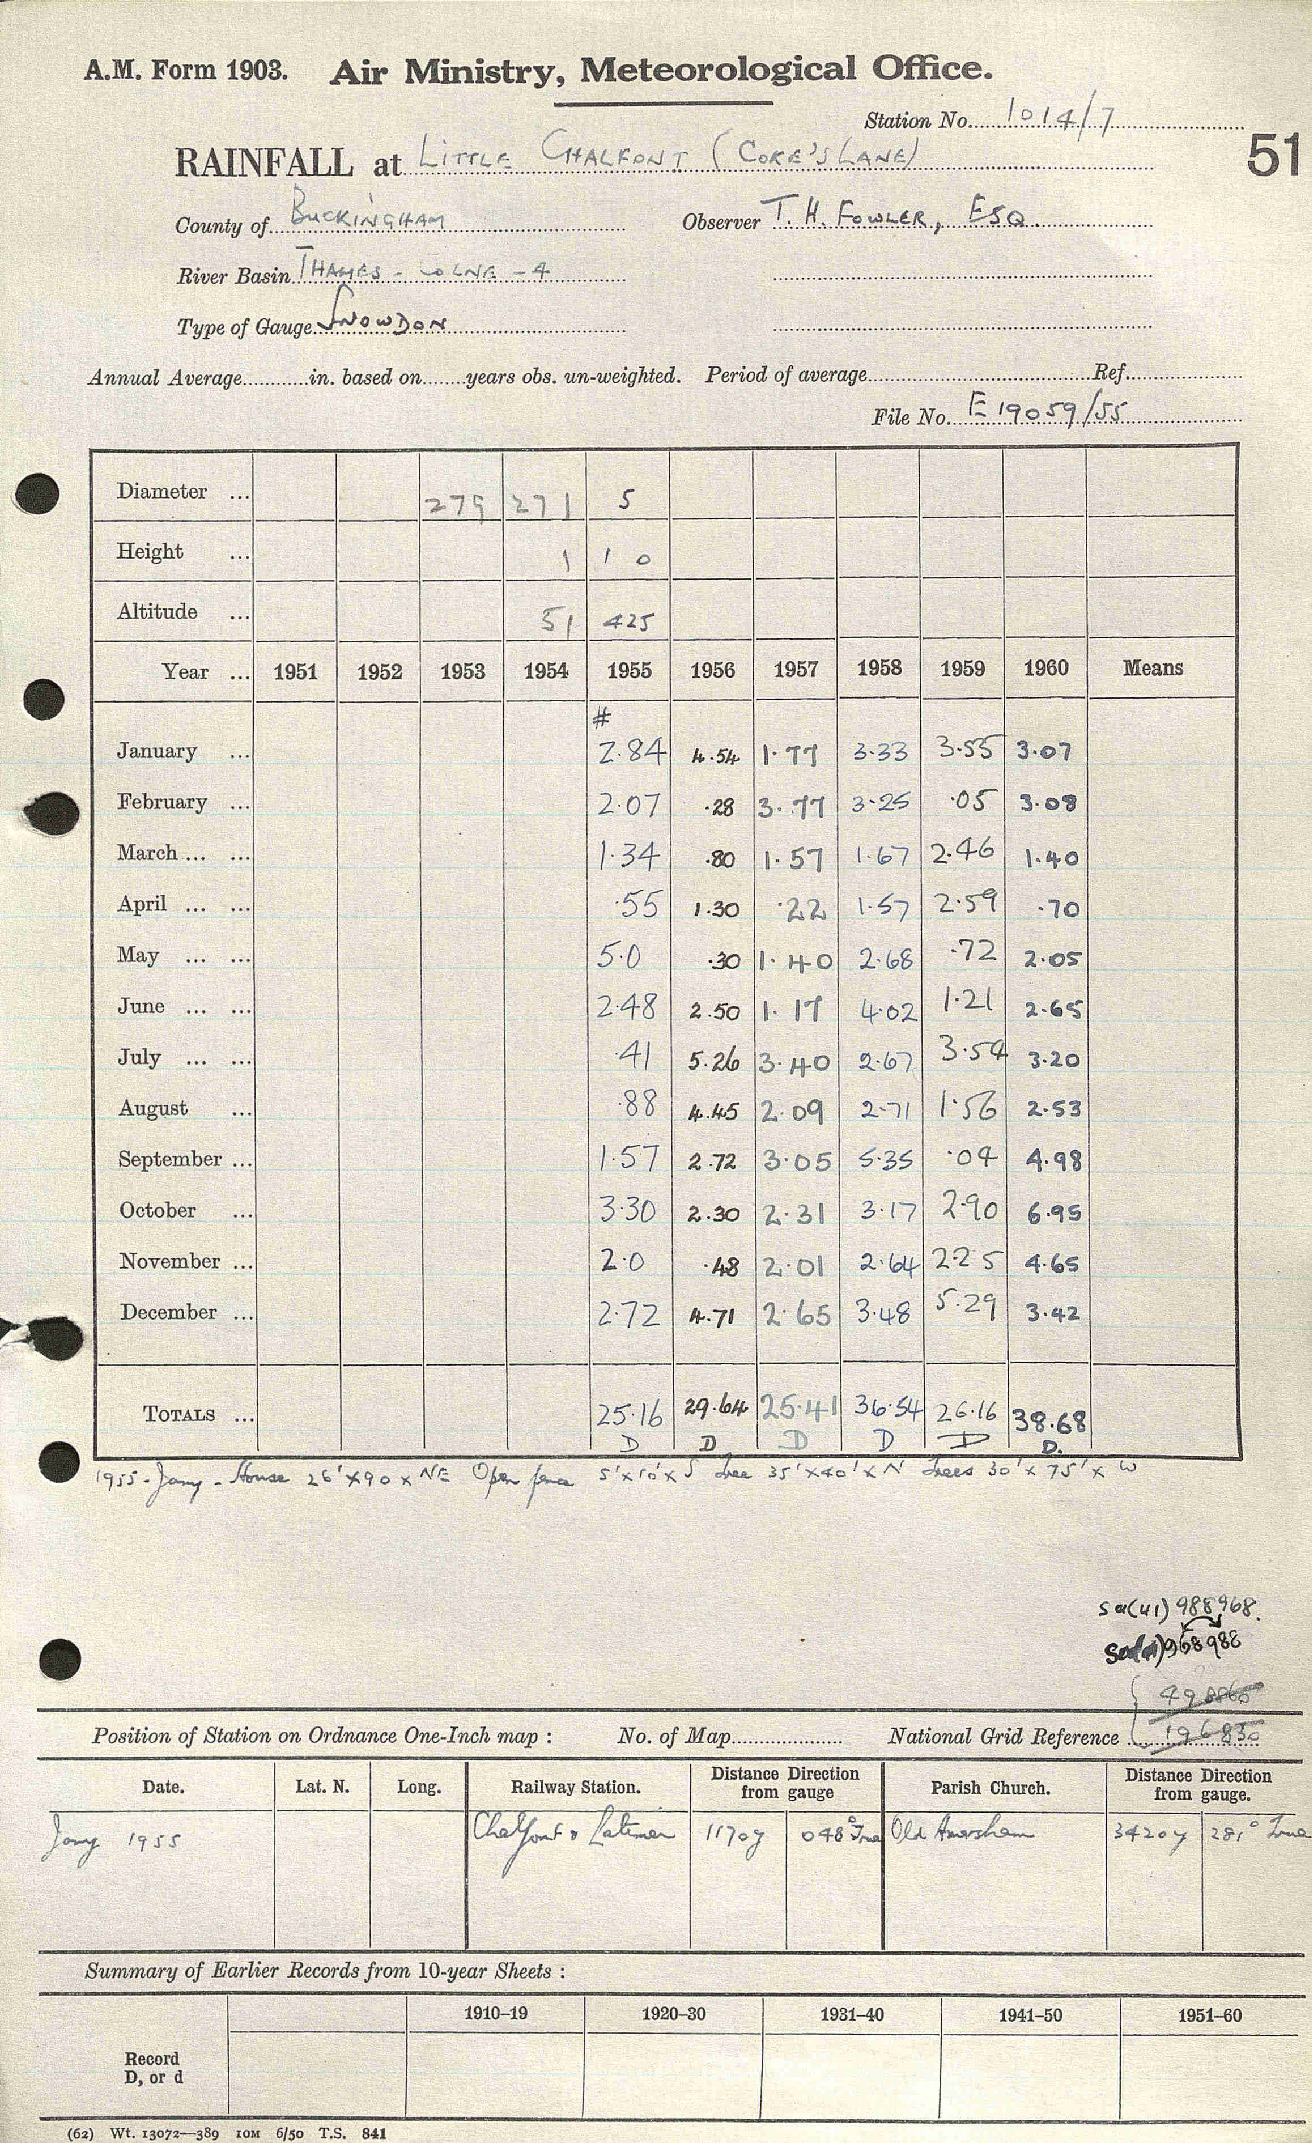 A.M. Form 1903. Air Ministry, Meteorological Office.
Station No. 1014/7
RAINFALL at LITTLE CHALFONT (COKE'S LANE)
51
County of BUCKINGHAM Observer T. H. FOWLER, ESQ.
River Basin THAMES - COLNE - 4
Type of Gauge SNOWDON
Annual Average in. based on years obs. un-weighted. Period of average Ref.
File No. E 19059/55
Diameter ... 279 271 5
Height ... 1 1 0
Altitude ... 51 425
Year ... 1951 1952 1953 1954 1955 1956 1957 1958 1959 1960 Means
#
January ... 2.84 4.54 1.77 3.33 3.55 3.07
February ... 2.07 .28 3.77 3.25 .05 3.08
March ... ... 1.34 .80 1.57 1.67 2.46 1.40
April ... ... .55 1.30 .22 1.57 2.59 .70
May ... ... 5.0 .30 1.40 2.68 .72 2.05
June ... ... 2.48 2.50 1.17 4.02 1.21 2.65
July ... ... .41 5.26 3.40 2.67 3.54 3.20
August ... .88 4.45 2.09 2.71 1.56 2.53
September ... 1.57 2.72 3.05 5.35 .04 4.98
October ... 3.30 2.30 2.31 3.17 2.90 6.95
November ... 2.0 .48 2.01 2.64 2.25 4.65
December ... 2.72 4.71 2.65 3.48 5.29 3.42
TOTALS ... 25.16 29.64 25.41 36.54 26.16 38.68
D D D D D D.
1955 - Jany - House 26'x90 x NE Open fence 5'x10'x S tree 35'x40'x N trees 30'x 75'x W
su(41) 988968.
968988
Position of Station on Ordnance One-Inch map : No. of Map National Grid Reference 196830
Date. Lat. N. Long. Railway Station. Distance Direction from gauge Parish Church. Distance Direction from gauge.
Jany 1955 Chalfont & Latimer 1170y 048° True Old Amersham 3420y 281° True
Summary of Earlier Records from 10-year Sheets :
1910–19 1920–30 1931–40 1941–50 1951–60
Record
D, or d
(62) Wt. 13072—389 10M 6/50 T.S. 841